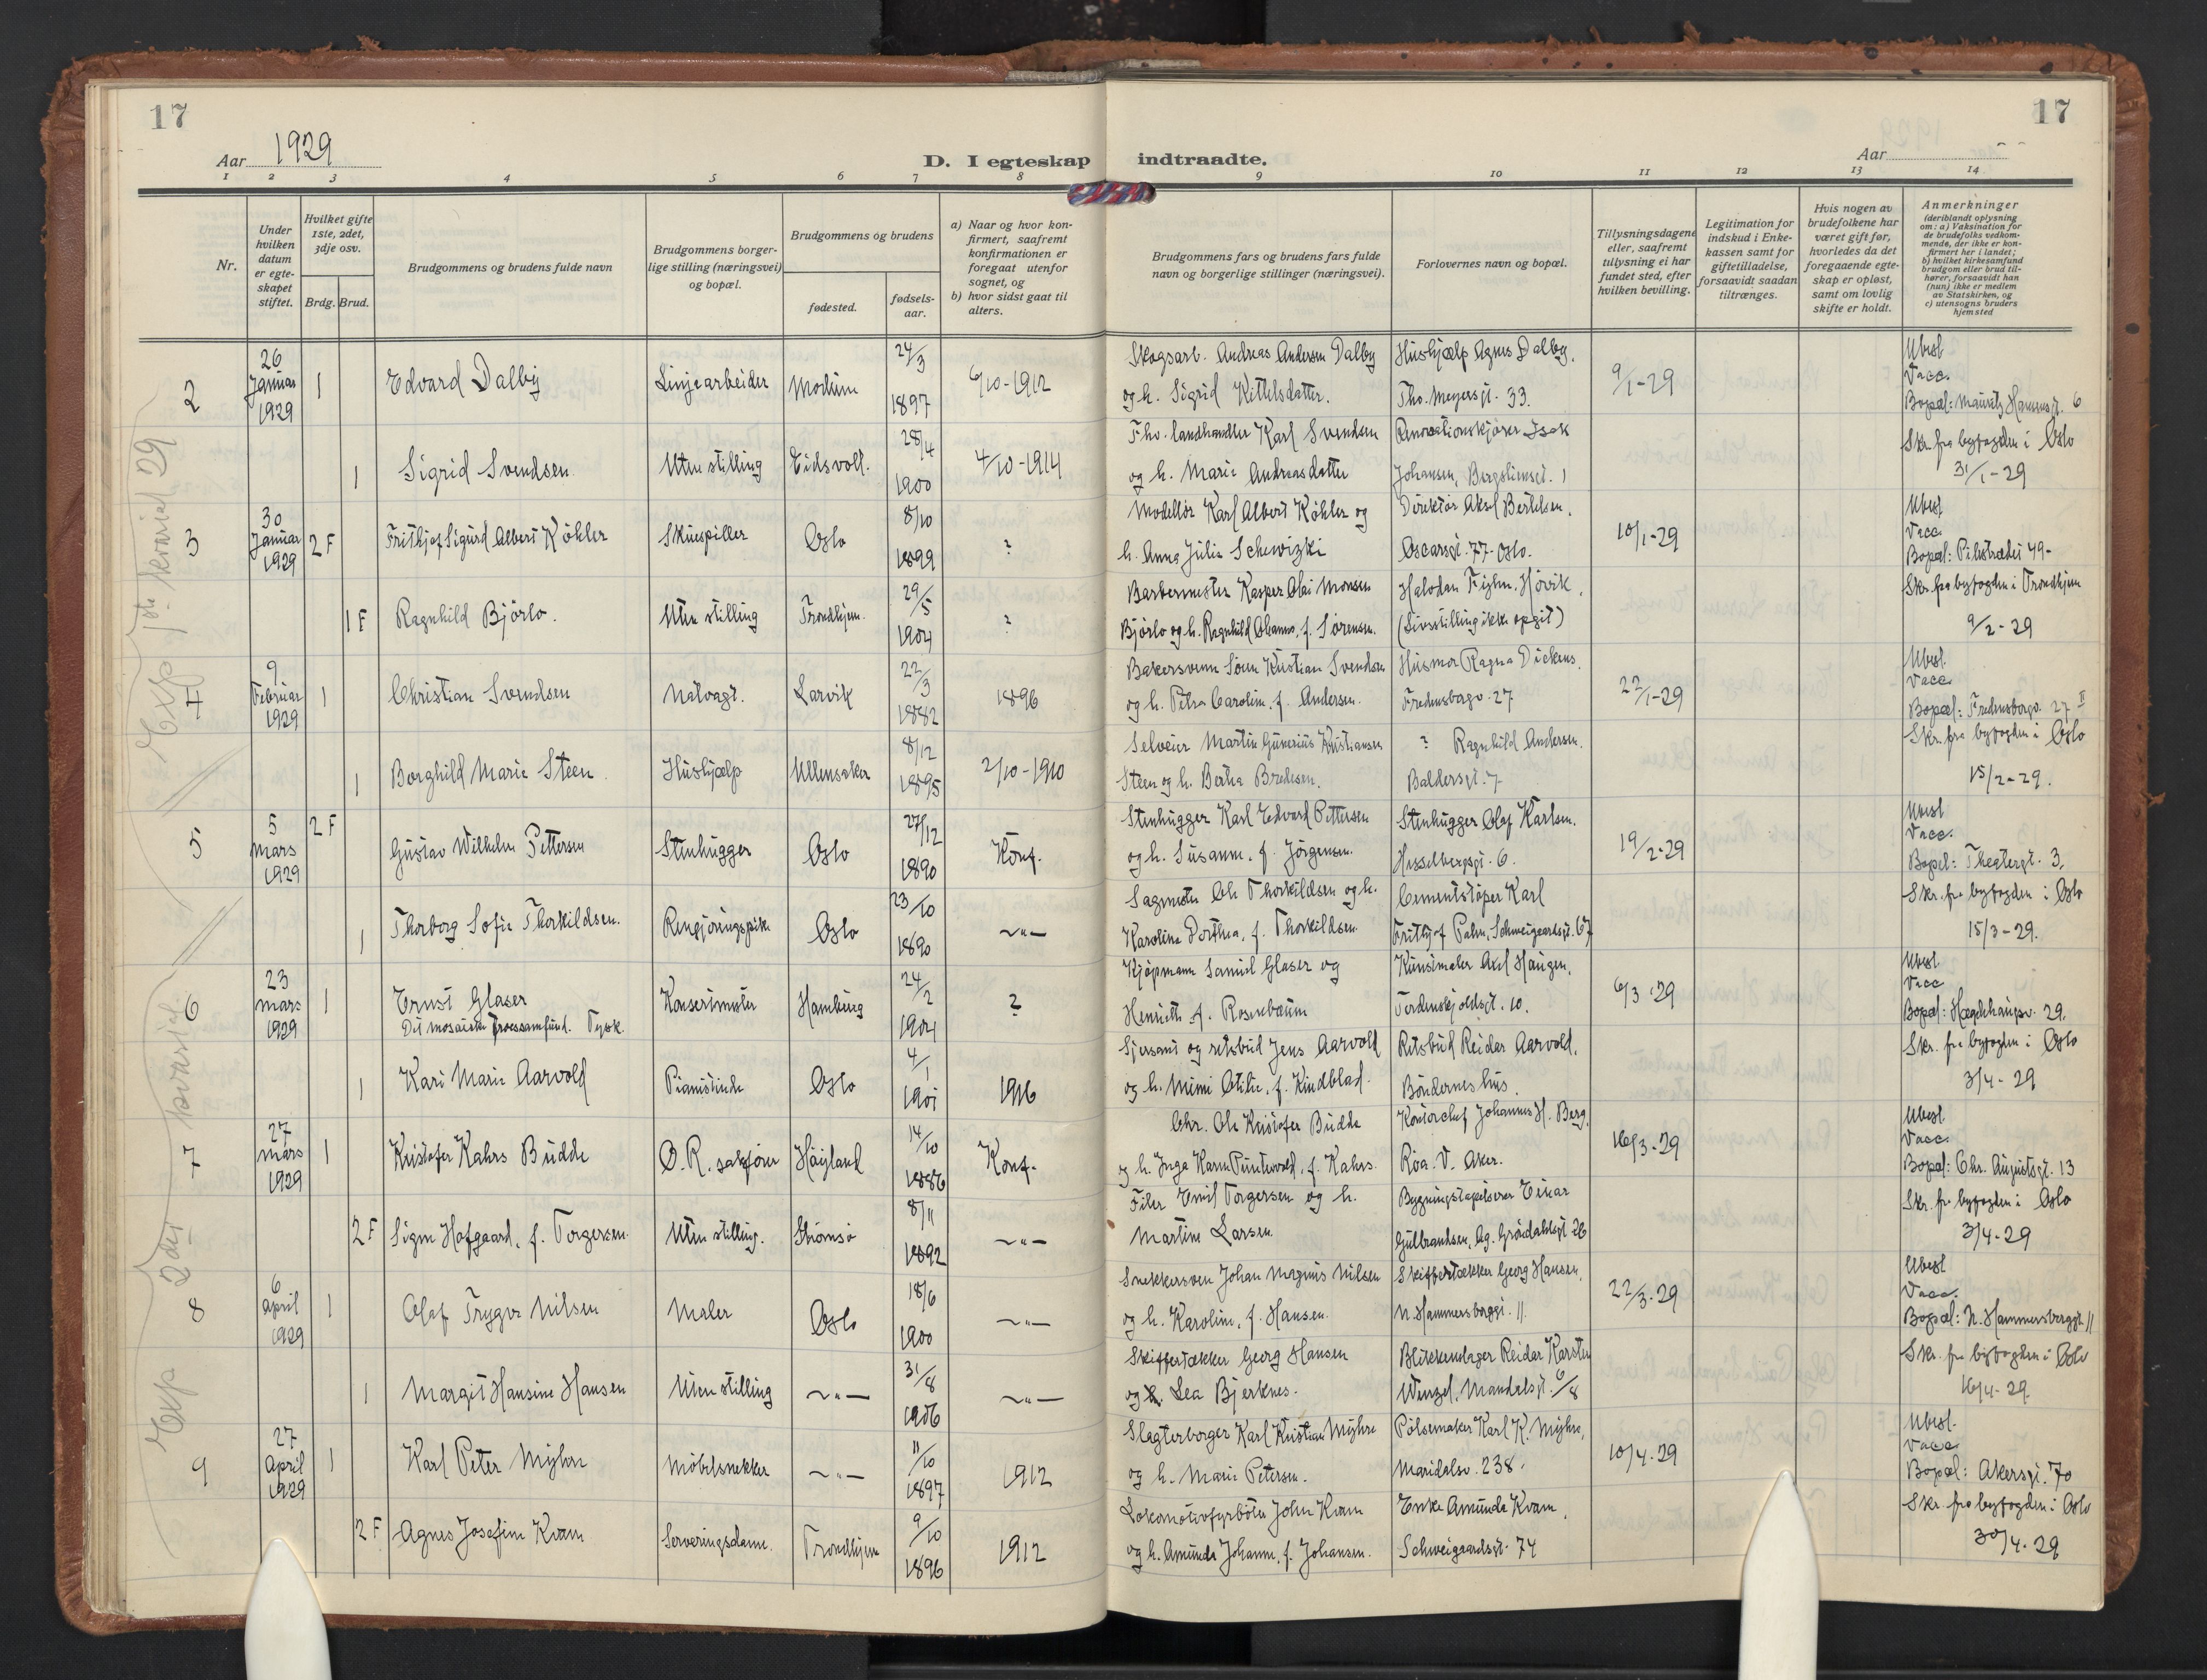 17
17
Aar 1929
D. I egteskap indtraadte.
Aar
1 2 3 4 5 6 7 8 9 10 11 12 13 14
Nr.
Under hvilken datum er egteskapet stiftet.
Hvilket gifte 1ste, 2det, 3dje osv.
Brdg. Brud.
Brudgommens og brudens fulde navn
Brudgommens borgerlige stilling (næringsvei) og bopæl.
Brudgommens og brudens
fødested.
fødselsaar.
a) Naar og hvor konfirmert, saafremt konfirmationen er foregaat utenfor sognet, og
b) hvor sidst gaat til alters.
Brudgommens fars og brudens fars fulde navn og borgerlige stillinger (næringsvei).
Forlovernes navn og bopæl.
Tillysningsdagene eller, saafremt tillysning ei har fundet sted, efter hvilken bevilling.
Legitimation for indskud i Enkekassen samt for giftetilladelse, forsaavidt saadan tiltrænges.
Hvis nogen av brudefolkene har været gift før, hvorledes da det foregaaende egteskap er opløst, samt om lovlig skifte er holdt.
Anmerkninger
(deriblandt oplysning om: a) Vaksination for de brudefolks vedkommende, der ikke er konfirmert her i landet; b) hvilket kirkesamfund brudgom eller brud tilhører, forsaavidt han (hun) ikke er medlem av Statskirken, og c) utensogns bruders hjemsted
Exp 1ste kvartal 29
2 26 Januar 1929 1 Edvard Dalby Linjearbeider Modum 24/3 1897 6/10-1912
Skogsarb. Andreas Andersen Dalby og h. Sigrid Kittelsdatter.
Hushjælp Agnes Dalby, Ths. Meyersgt. 33.
9/1-29
Ubesl Vacc. Bopæl: Mauritz Hansensgt. 6
1 Sigrid Svendsen. Uten stilling Eidsvoll. 28/4 1900 4/10-1914
Fhv. landhandler Karl Svendsen og h. Marie Andreasdatter
Renovationskjører Isak Johansen, Bergsliensgt. 1
Skr. fra byfogden i Oslo 31/1-29
3 30 Januar 1929 2 F Frithjof Sigurd Albert Köhler Skuespiller Oslo 8/10 1899 ?
Modellør Karl Albert Köhler og h. Anna Julie Schewizki
Direktør Aksel Berthelsen, Oscarsgt. 77-Oslo.
10/1-29
Ubesl Vacc Bopæl: Pilestrædet 49-
1 F Ragnhild Bjørlo. Uten stilling Trondhjem. 29/5 1904 ?
Barbermester Kasper Olai Monsen Bjørlo og h. Ragnhild Johanna, f. Sørensen.
Halvdan Høvik, (Livsstilling ikke opgit)
Skr. fra byfogden i Trondhjem 9/2-29
4 9 Februar 1929 1 Christian Svendsen Natvagt. Larvik 22/3 1882 1896
Bakersvenn Søren Kristian Svendsen og h. Petra Caroline, f. Andersen.
Husmor Ragna Dickens, Fredensborgv. 27
22/1-29
Ubesl. Vacc. Bopæl: Fredensborgv. 27 II
1 Borghild Marie Steen Hushjælp Ullensaker 8/12 1895 2/10-1910
Selveier Martin Gunerius Kristiansen Steen og h. Bertha Bredesen.
? Ragnhild Andersen. Baldersgt. 7
Skr. fra byfogden i Oslo 15/2-29.
5 5 mars 1929 2 F Gustav Wilhelm Pettersen Stenhugger Oslo 27/12 1890 Konf.
Stenhugger Karl Edvard Pettersen og h. Susanne, f. Jørgensen.
Stenhugger Olaf Karlsen. Hesselbergsgt. 6.
19/2-29
Ubesl Vacc. Bopæl: Theatergt. 3.
1 Thorborg Sofie Thorkildsen. Rengjøringspike Oslo 23/10 1890 ~"—
Sagmester Ole Thorkildsen og h. Karoline Dorthea, f. Thorkildsen.
Cementstøper Karl Frithjof Palm, Schweigaardsgt. 67
Skr. fra byfogden i Oslo 15/3-29.
Exp 2det kvartal
6 23 mars 1929 1 Ernst Glaser Det mosaiske troessamfund. Tysk. Konsertmester Hamburg 24/2 1904 ?
Kjøpmann Samuel Glaser og Henriette f. Rosenbaum
Kunstmaler Axel Haugen, Tordenskjoldsgt. 10.
6/3-29
Ubesl Vacc Bopæl: Hægdehaugsv. 29.
1 Kari Marie Aarvold Pianistinde Oslo 4/1 1901 1916
Sjersant og retsbud Jens Aarvold og h. Mimi Otilie, f. Kindblad.
Retsbud Reidar Aarvold, Bøndernes hus.
Skr. fra byfogden i Oslo 3/4-29
7 27 mars 1929 1 Kristofer Kahrs Budde O. R. sakfører Høyland 14/10 1886 Konf.
Chr. Ole Kristofer Budde og h. Inga Karen Puntervold, f. Kahrs.
Kontorchef Johannes H. Berg, Røa. V. Aker.
16/3-29
Ubesl Vacc. Bopæl: Chr. Augustsgt. 13
2 F Signe Hofgaard, f. Torgersen. Uten stilling. Strømsø 8/11 1892 ~"—
Filer Emil Torgersen og h. Martine Larsen.
Bygningstapetserer Einar Gulbrandsen, Ag. Grøndahlsgt 26
Skr. fra byfogden i Oslo 3/4-29
8 6 april 1929 1 Olaf Trygve Nilsen Maler Oslo 18/6 1900 ~"—
Snekkersven Johan Magnus Nilsen og h. Karoline, f. Hansen.
Skiffertækker Georg Hansen, N. Hammersborggt. 11.
22/3-29
Ubesl Vacc. Bopæl: N. Hammersborggt. 11
1 Margit Hansine Hansen Uten stilling ~"— 31/8 1906 ~"—
Skiffertækker Georg Hansen og h. Lea Bjerknes.
Blikkenslager Reidar Karsten Wenzel, Mandalsgt. 6/8
Skr. fra byfogden i Oslo 16/4-29.
9 27 April 1929 1 Karl Peter Myhre Møbelsnekker ~"— 11/10 1897 1912
Slagterborger Karl Kristian Myhre og h. Marie Petersen.
Pølsemaker Karl K. Myhre, Maridalsv. 238.
10/4-29
Ubesl. Vacc Bopæl: Akersgt. 70
2 F Agnes Josefine Kvam Serveringsdame. Trondhjem 9/10 1896 1912
Lokomotivfyrbøter John Kvam og h. Amunda Johanne, f. Johansen.
Enke Amunda Kvam, Schweigaardsgt. 74
Skr. fra byfogden i Oslo 30/4-29